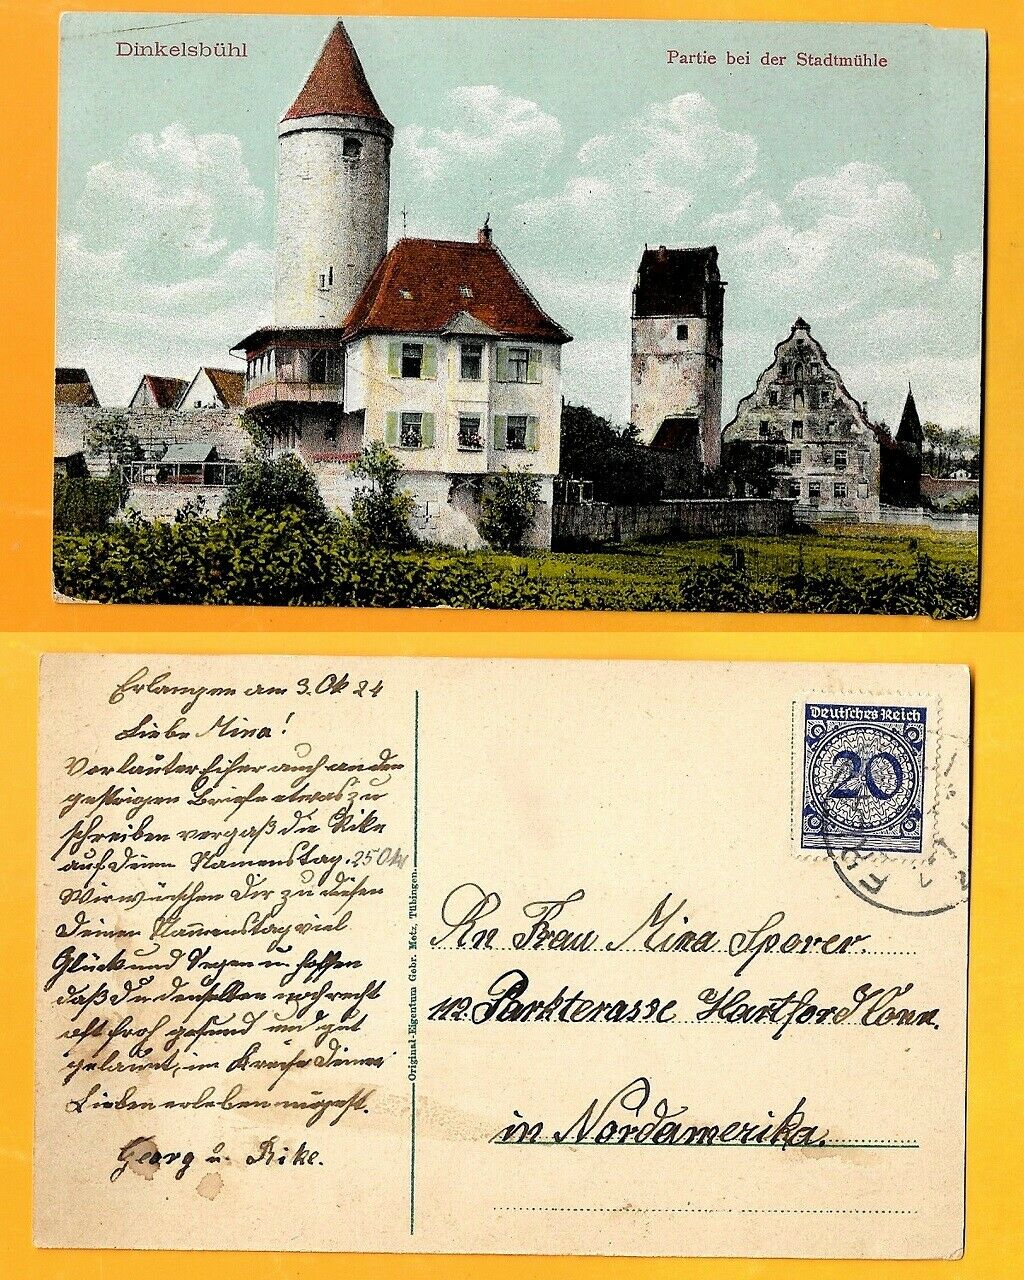 Dinkelsbühl
Partie bei der Stadtmühle
Erlangen am 3. Ok 24
Liebe Mina!
Vor lauter Eifer auch an den
gestrigen Briefe etwas zu
schreiben vergaß die Rike
auf Deinen Namenstag. 25 Ok
Wir wünschen Dir zu diesen
Deinen Namenstag viel
Glück und Segen u. hoffen
daß Du denselben noch recht
oft froh gesund und gut
gelaunt, im Kreise Deiner
Lieben erleben mögest.
Georg u. Rike.
Original-Eigentum Gebr. Metz, Tübingen.
Deutsches Reich
20
An Frau Mina Sporer.
112 Parkterasse Hartford Conn.
in Nordamerika.